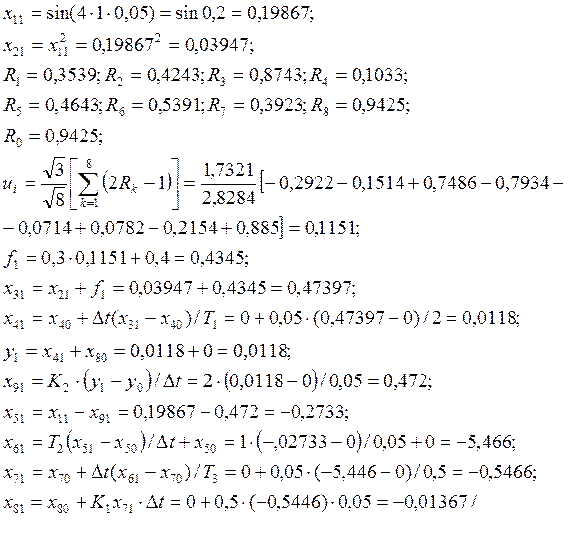 x₁₁ = sin(4·1·0,05) = sin 0,2 = 0,19867;
x₂₁ = x₁₁² = 0,19867² = 0,03947;
R₁ = 0,3539; R₂ = 0,4243; R₃ = 0,8743; R₄ = 0,1033;
R₅ = 0,4643; R₆ = 0,5391; R₇ = 0,3923; R₈ = 0,9425;
R₉ = 0,9425;
u₁ = √3/√8 [∑_{k=1}^{8} (2R_k − 1)] = 1,7321/2,8284 [−0,2922 − 0,1514 + 0,7486 − 0,7934 −
− 0,0714 + 0,0782 − 0,2154 + 0,885] = 0,1151;
f₁ = 0,3·0,1151 + 0,4 = 0,4345;
x₃₁ = x₂₁ + f₁ = 0,03947 + 0,4345 = 0,47397;
x₄₁ = x₄₀ + Δt(x₃₁ − x₄₀)/T₁ = 0 + 0,05·(0,47397 − 0)/2 = 0,0118;
y₁ = x₄₁ + x₈₀ = 0,0118 + 0 = 0,0118;
x₉₁ = K₂·(y₁ − y₀)/Δt = 2·(0,0118 − 0)/0,05 = 0,472;
x₅₁ = x₁₁ − x₉₁ = 0,19867 − 0,472 = −0,2733;
x₆₁ = T₂(x₅₁ − x₅₀)/Δt + x₅₀ = 1·(−,02733 − 0)/0,05 + 0 = −5,466;
x₇₁ = x₇₀ + Δt(x₆₁ − x₇₀)/T₃ = 0 + 0,05·(−5,446 − 0)/0,5 = −0,5466;
x₈₁ = x₈₀ + K₁x₇₁·Δt = 0 + 0,5·(−0,5446)·0,05 = −0,01367/